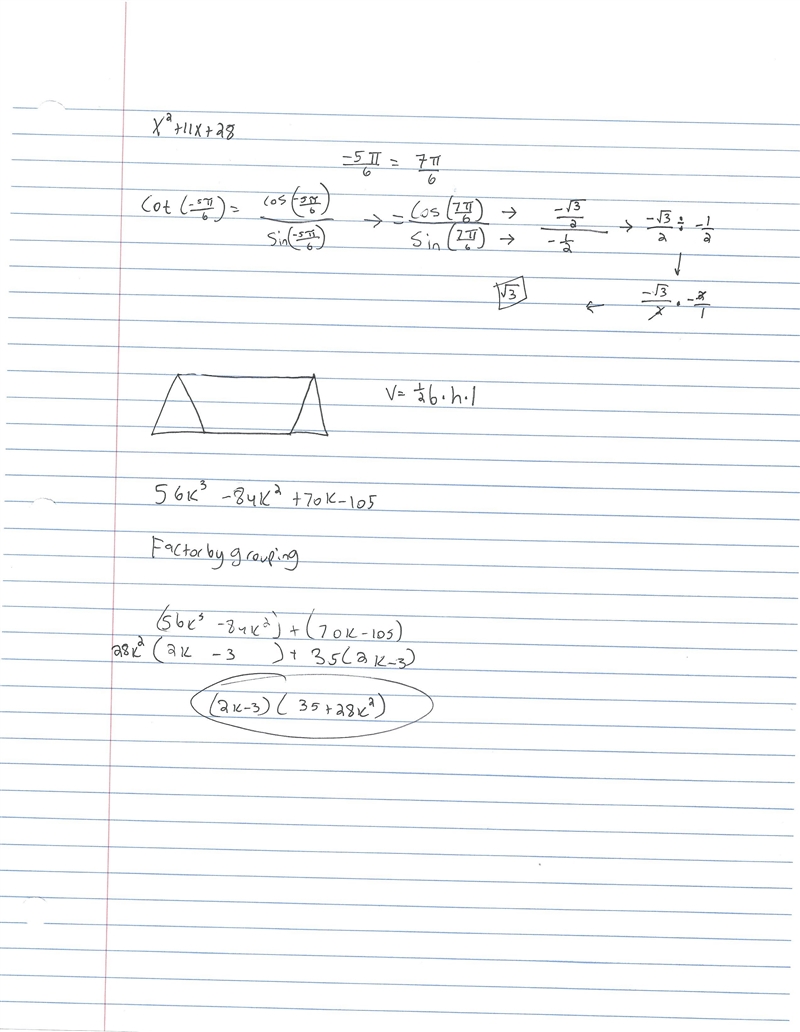 x²+11x+28
-5π/6 = 7π/6
Cot(-5π/6) = cos(-5π/6)/sin(-5π/6) → = cos(7π/6)/sin(7π/6) → → (-√3/2)/(-1/2) → -√3/2 ÷ -1/2
↓
√3 ← -√3/2 · -2/1
V= 1/2 b·h·l
56k³ -84k² +70k-105
Factor by grouping
(56k³ -84k²)+(70k-105)
28k²(2k -3 )+ 35(2k-3)
(2k-3)( 35+28k²)